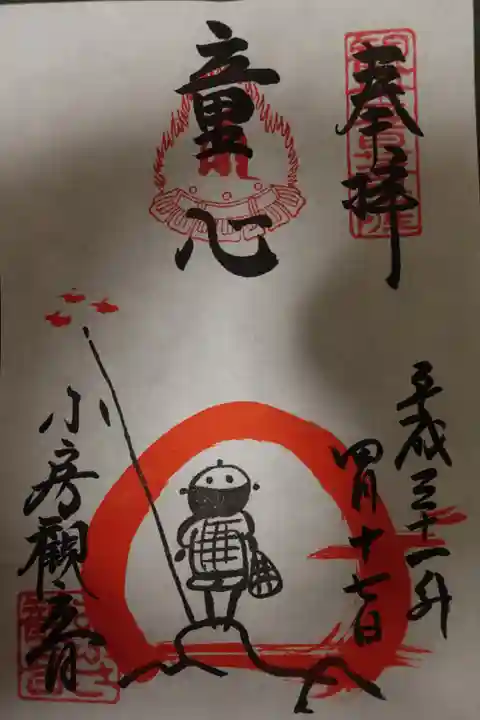 奉拝
童心
平成三十一年
四月十七日
小房観音